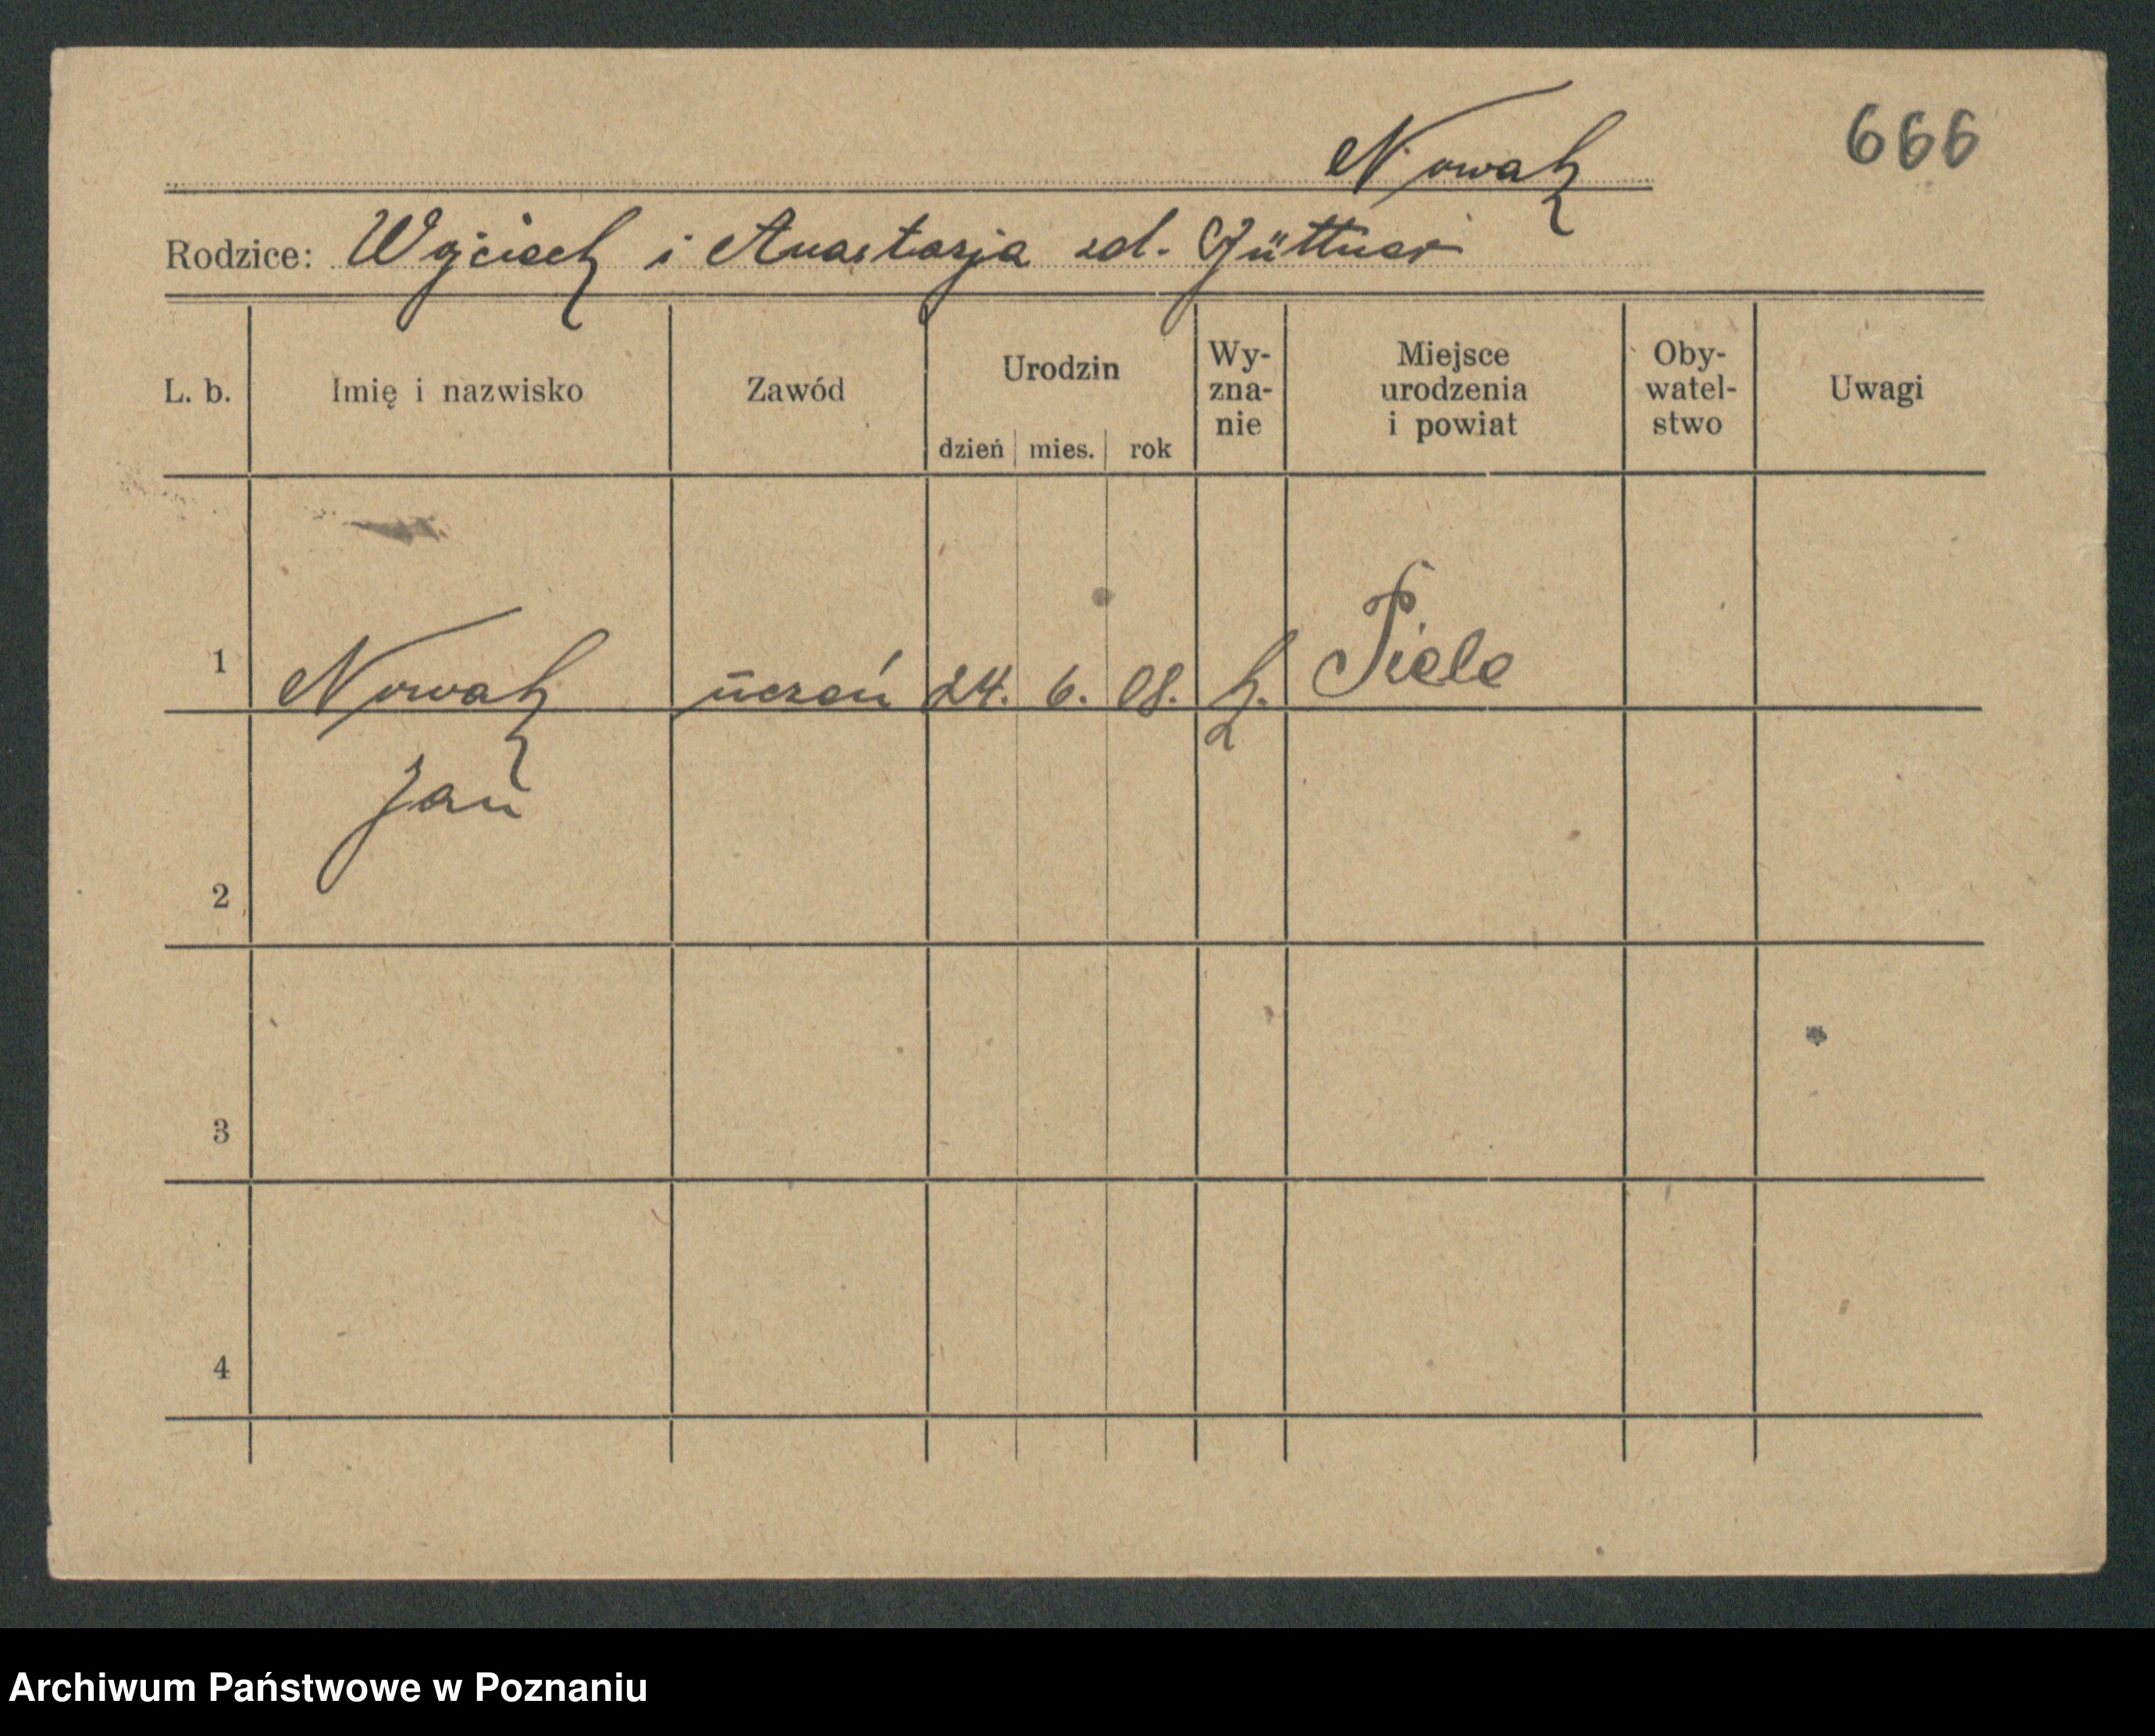 Nowak
666
Rodzice: Wojciech i Anastazja zd. Jüttner
L. b.
Imię i nazwisko
Zawód
Urodzin
dzień mies. rok
Wy-
zna-
nie
Miejsce
urodzenia
i powiat
Oby-
watel-
stwo
Uwagi
1 Nowak uczeń 24. 6. 08. k. Piele
Jan
2
3
4
Archiwum Państwowe w Poznaniu